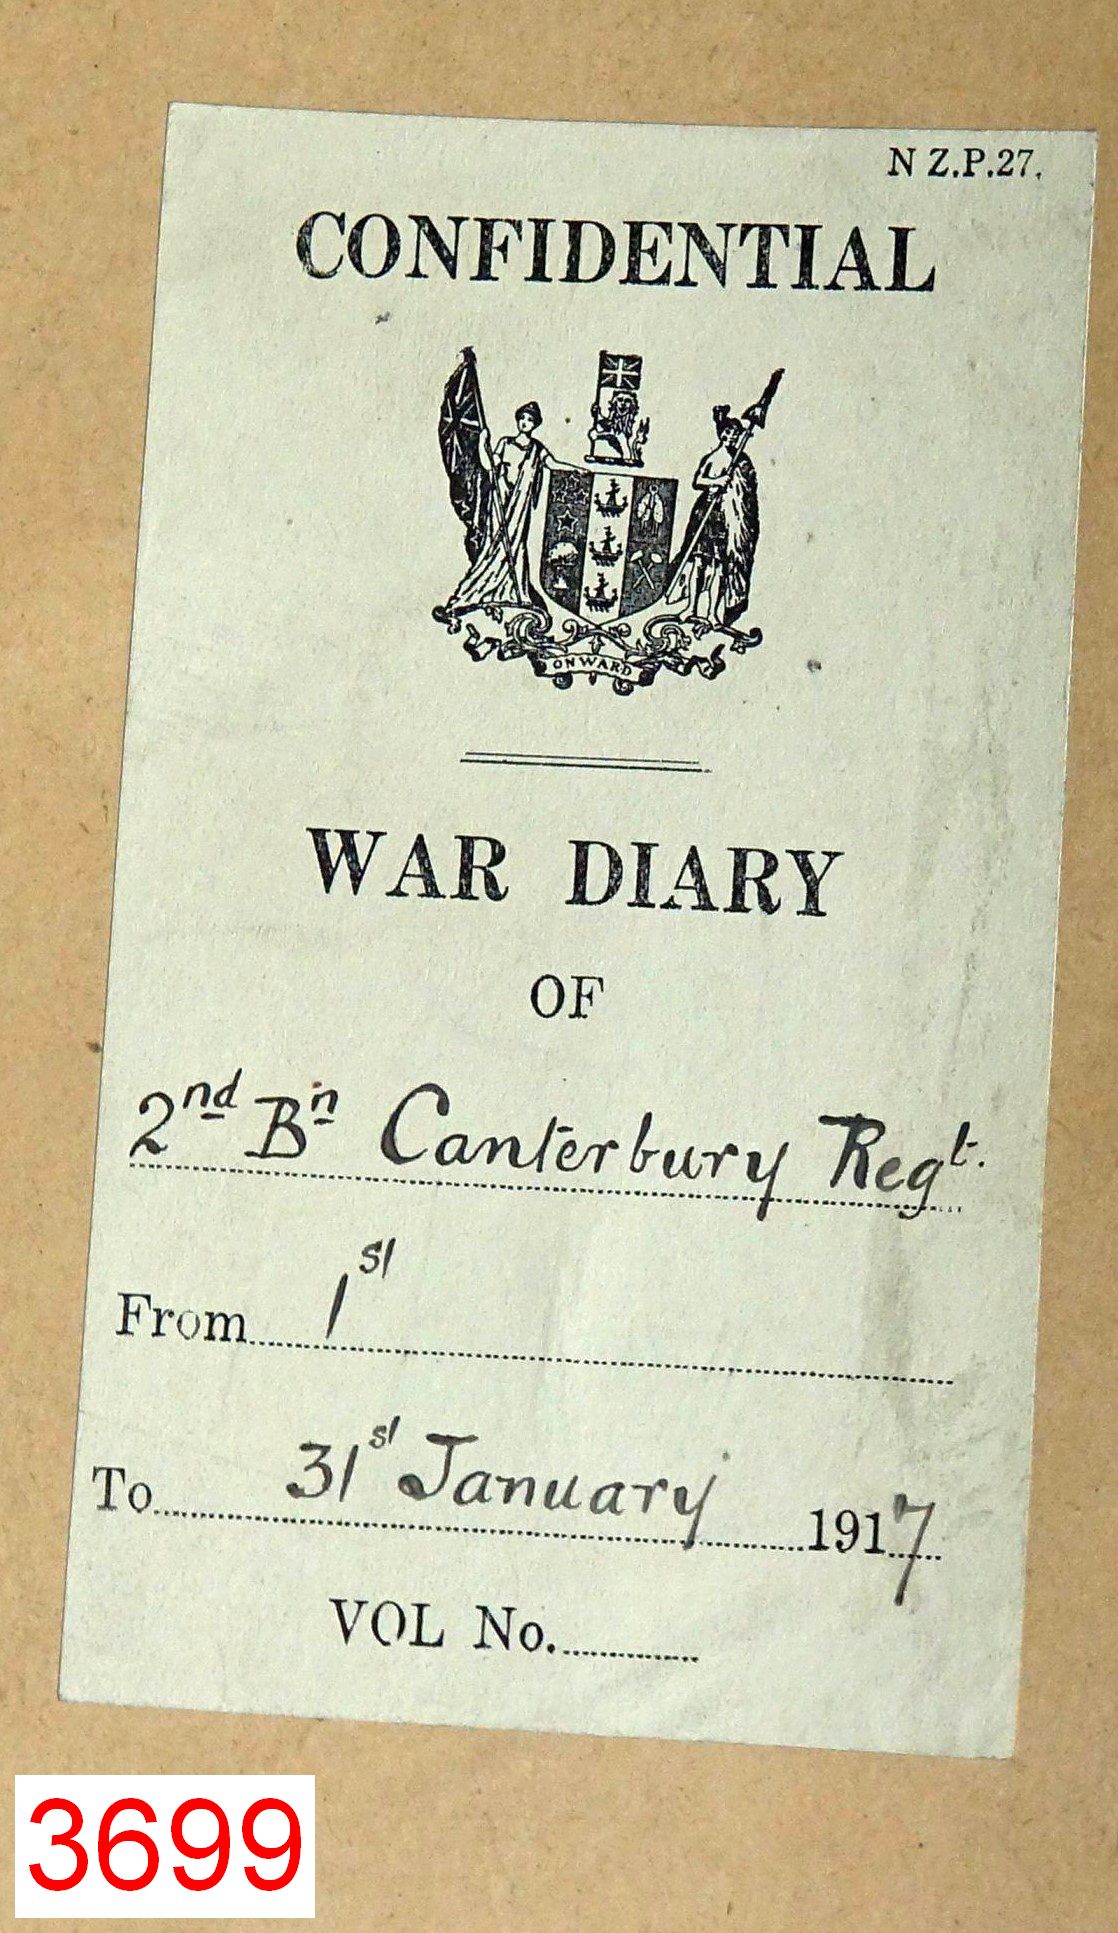 N Z.P.27.
CONFIDENTIAL
ONWARD
WAR DIARY
OF
2nd Bn Canterbury Regt.
From 1st
To 31st January 1917
VOL No.
3699